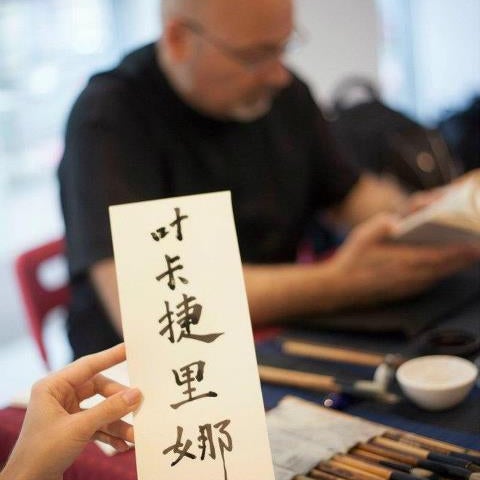 叶卡捷里娜